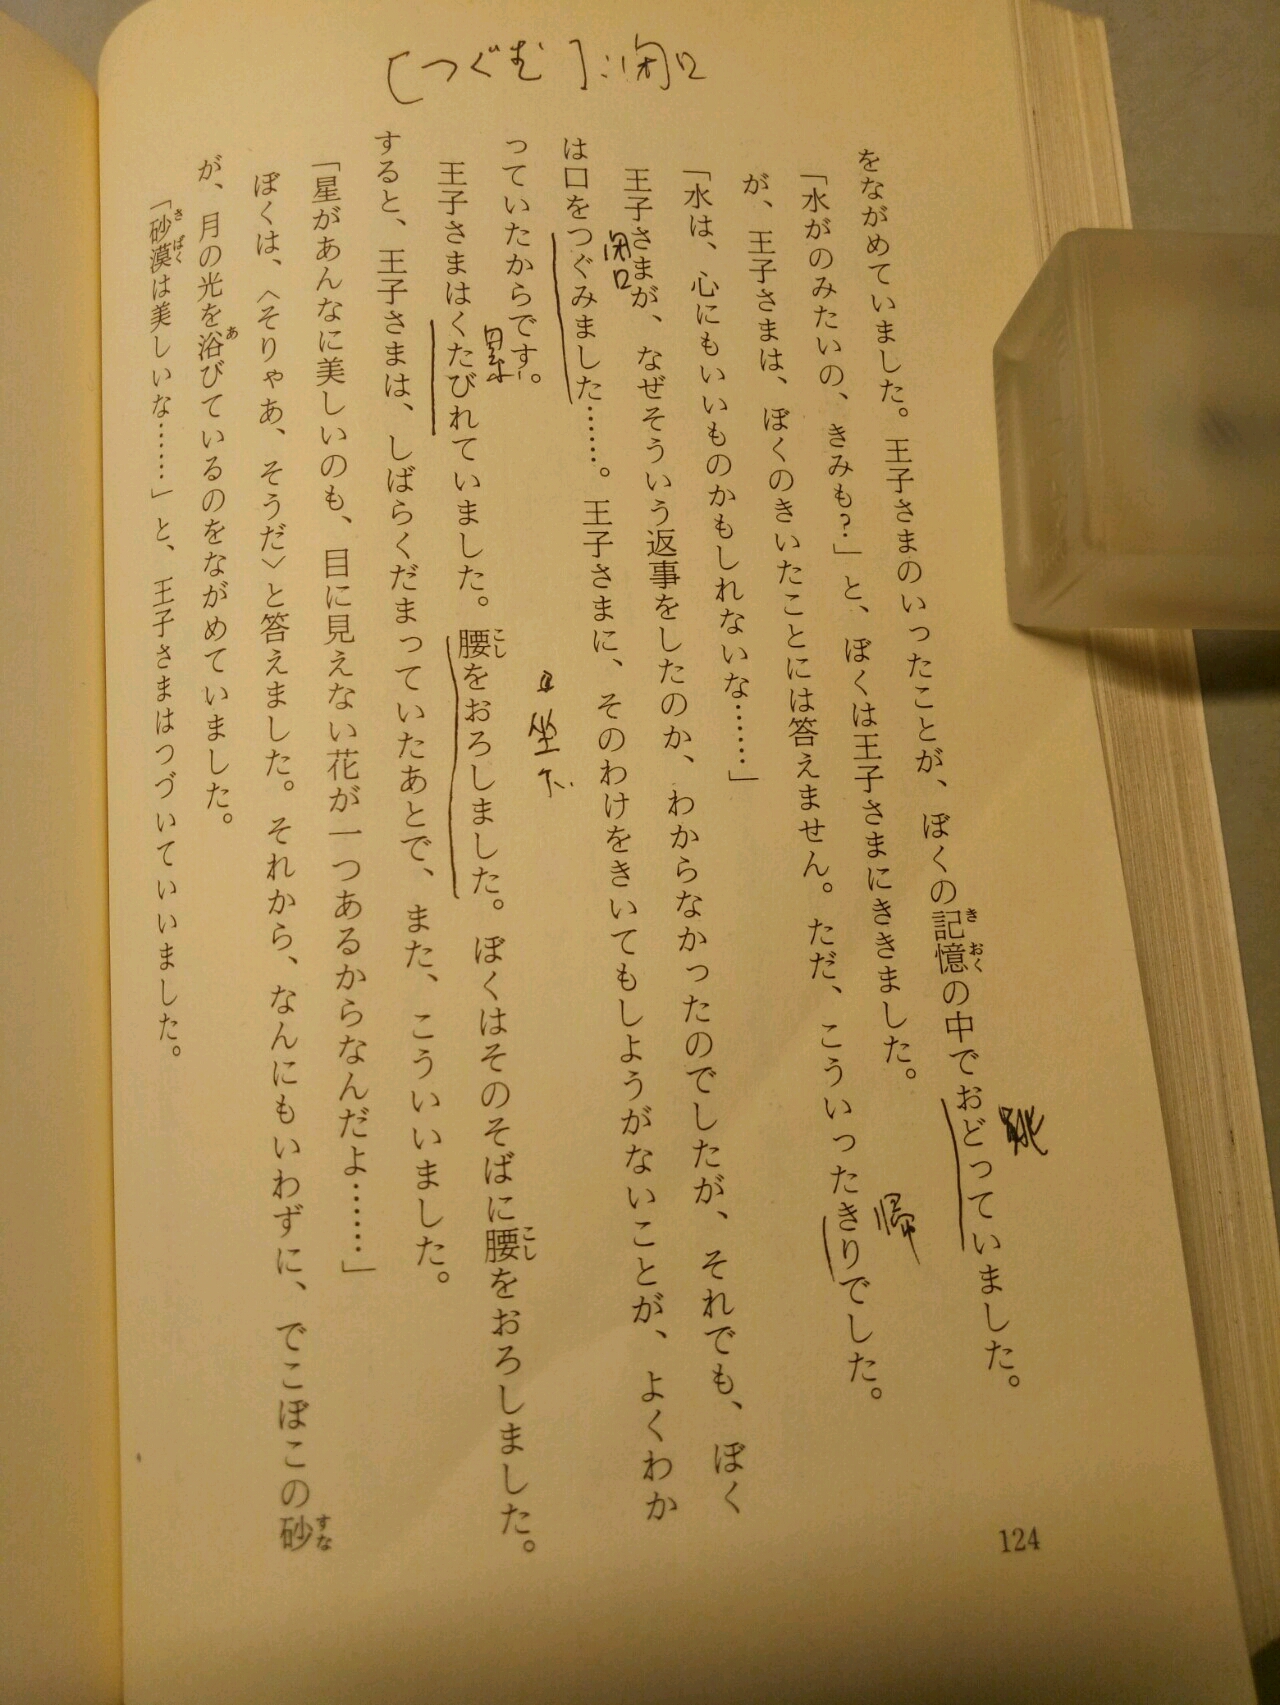 [つぐむ]：闭口
をながめていました。王子さまのいったことが、ぼくの記憶の中でおどっていました。
きおく
跳
「水がのみたいの、きみも？」と、ぼくは王子さまにききました。
が、王子さまは、ぼくのきいたことには答えません。ただ、こういったきりでした。
「水は、心にもいいものかもしれないな……」
王子さまが、なぜそういう返事をしたのか、わからなかったのでしたが、それでも、ぼく
闭口
は口をつぐみました……。王子さまに、そのわけをきいてもしようがないことが、よくわか
っていたからです。
累
坐下
王子さまはくたびれていました。腰をおろしました。ぼくはそのそばに腰をおろしました。
こし
こし
すると、王子さまは、しばらくだまっていたあとで、また、こういいました。
「星があんなに美しいのも、目に見えない花が一つあるからなんだよ……」
ぼくは、〈そりゃあ、そうだ〉と答えました。それから、なんにもいわずに、でこぼこの砂
すな
が、月の光を浴びているのをながめていました。
あ
「砂漠は美しいな……」と、王子さまはつづいていいました。
さばく
124